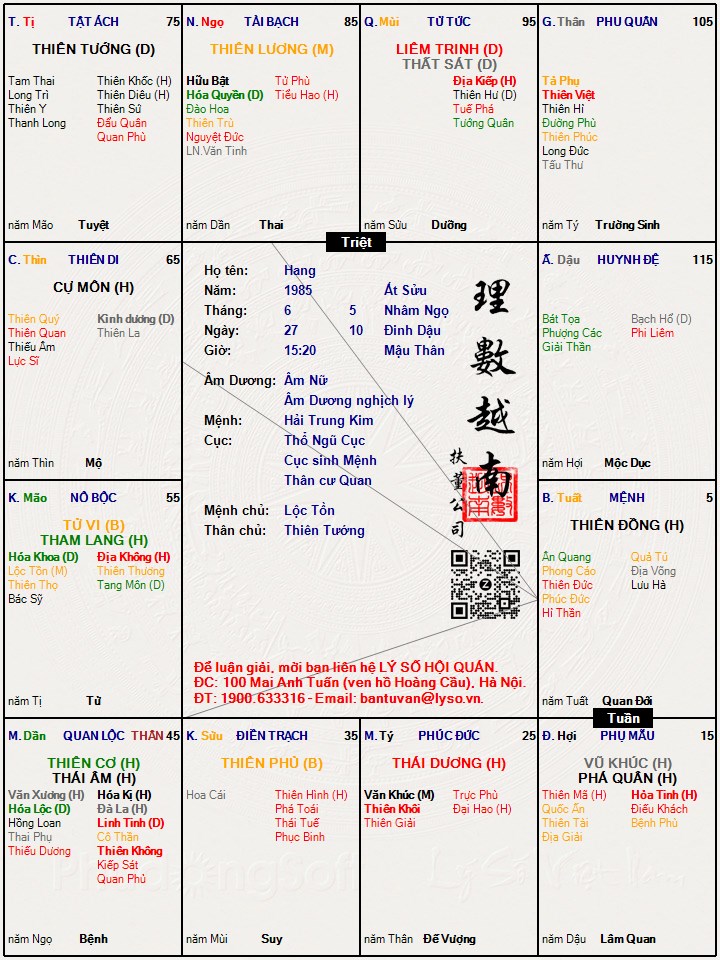 T. Tị TẬT ÁCH 75
THIÊN TƯỚNG (D)
Tam Thai Thiên Khốc (H)
Long Trì Thiên Diêu (H)
Thiên Y Thiên Sứ
Thanh Long Đẩu Quân
Quan Phù
năm Mão Tuyệt
N. Ngọ TÀI BẠCH 85
THIÊN LƯƠNG (M)
Hữu Bật Tử Phù
Hóa Quyền (D) Tiểu Hao (H)
Đào Hoa
Thiên Trù
Nguyệt Đức
LN.Văn Tinh
năm Dần Thai
Q. Mùi TỬ TỨC 95
LIÊM TRINH (D)
THẤT SÁT (D)
Địa Kiếp (H)
Thiên Hư (D)
Tuế Phá
Tướng Quân
năm Sửu Dưỡng
G. Thân PHU QUÂN 105
Tả Phụ
Thiên Việt
Thiên Hỉ
Đường Phù
Thiên Phúc
Long Đức
Tấu Thư
năm Tý Trường Sinh
Triệt
C. Thìn THIÊN DI 65
CỰ MÔN (H)
Thiên Quý Kình dương (D)
Thiên Quan Thiên La
Thiếu Âm
Lực Sĩ
năm Thìn Mộ
Họ tên: Hang
Năm: 1985 Ất Sửu
Tháng: 6 5 Nhâm Ngọ
Ngày: 27 10 Đinh Dậu
Giờ: 15:20 Mậu Thân
Âm Dương: Âm Nữ
Âm Dương nghịch lý
Mệnh: Hải Trung Kim
Cục: Thổ Ngũ Cục
Cục sinh Mệnh
Thân cư Quan
Mệnh chủ: Lộc Tồn
Thân chủ: Thiên Tướng
理數越南
扶董公司
Để luận giải, mời bạn liên hệ LÝ SỐ HỘI QUÁN.
ĐC: 100 Mai Anh Tuấn (ven hồ Hoàng Cầu), Hà Nội.
ĐT: 1900.633316 - Email: bantuvan@lyso.vn.
Ấ. Dậu HUYNH ĐỆ 115
Bát Tọa Bạch Hổ (D)
Phượng Các Phi Liêm
Giải Thần
năm Hợi Mộc Dục
K. Mão NÔ BỘC 55
TỬ VI (B)
THAM LANG (H)
Hóa Khoa (D) Địa Không (H)
Lộc Tồn (M) Thiên Thương
Thiên Thọ Tang Môn (D)
Bác Sỹ
năm Tị Tử
B. Tuất MỆNH 5
THIÊN ĐỒNG (H)
Ân Quang Quả Tú
Phong Cáo Địa Võng
Thiên Đức Lưu Hà
Phúc Đức
Hỉ Thần
năm Tuất Quan Đới
Tuần
M. Dần QUAN LỘC THÂN 45
THIÊN CƠ (H)
THÁI ÂM (H)
Văn Xương (H) Hóa Kị (H)
Hóa Lộc (D) Đà La (H)
Hồng Loan Linh Tinh (D)
Thai Phụ Cô Thần
Thiếu Dương Thiên Không
Kiếp Sát
Quan Phủ
năm Ngọ Bệnh
K. Sửu ĐIỀN TRẠCH 35
THIÊN PHỦ (B)
Hoa Cái Thiên Hình (H)
Phá Toái
Thái Tuế
Phục Binh
năm Mùi Suy
M. Tý PHÚC ĐỨC 25
THÁI DƯƠNG (H)
Văn Khúc (M) Trực Phù
Thiên Khôi Đại Hao (H)
Thiên Giải
năm Thân Đế Vượng
Đ. Hợi PHỤ MẪU 15
VŨ KHÚC (H)
PHÁ QUÂN (H)
Thiên Mã (H) Hỏa Tinh (H)
Quốc Ấn Điếu Khách
Thiên Tài Bệnh Phù
Địa Giải
năm Dậu Lâm Quan